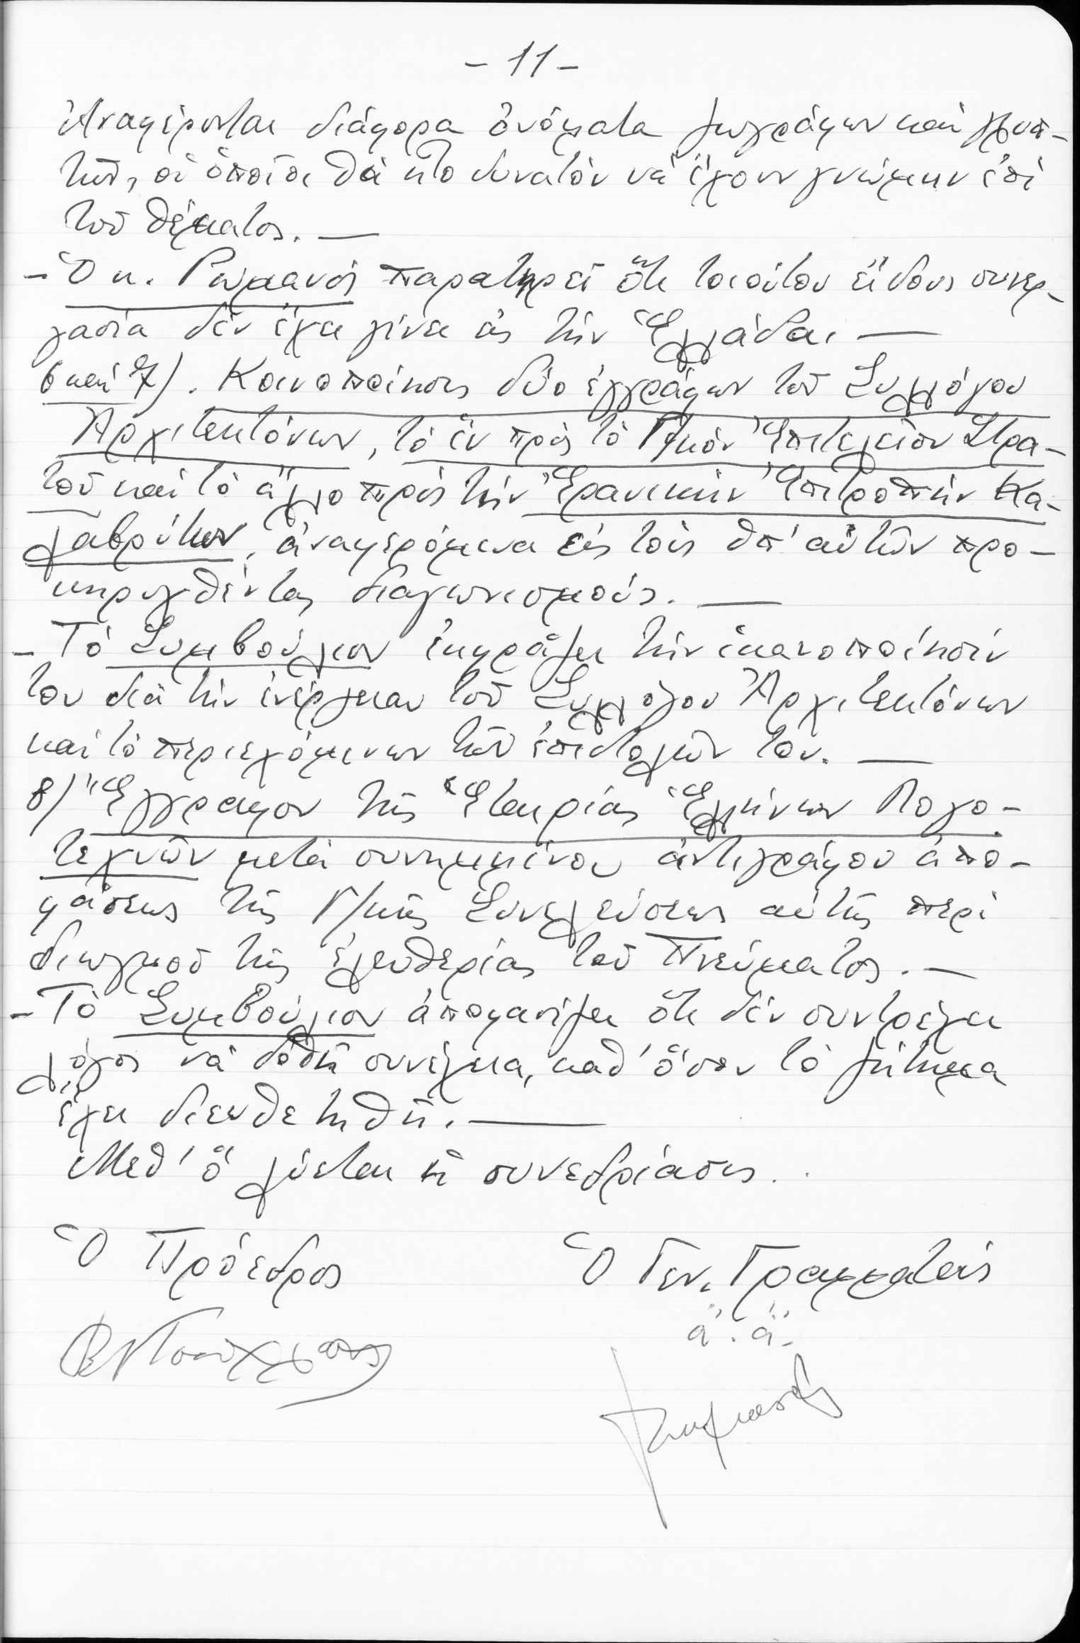 - 11 -
Ἀναφέρονται διάφορα ὀνόματα ζωγράφων καὶ γλυπ-
τῶν, οἱ ὁποῖοι θὰ ἦτο δυνατὸν νὰ ἔχουν γνώμην ἐπὶ
τοῦ θέματος. —
- Ὁ κ. Ρωμανός παρατηρεῖ ὅτι τοιούτου εἴδους συνερ-
γασία δὲν ἔχει γίνει εἰς τὴν Ἑλλάδα. —
6 καὶ 7). Κοινοποίησις δύο ἐγγράφων τοῦ Συλλόγου
Ἀρχιτεκτόνων, τὸ ἓν πρὸς τὸ Γ/κὸν Ἐπιτελεῖον Στρα-
τοῦ καὶ τὸ ἄλλο πρὸς τὴν Ἐρανικὴν Ἐπιτροπὴν Κα-
λαβρύτων, ἀναφερόμενα εἰς τοὺς ὑπ' αὐτῶν προ-
κηρυχθέντας διαγωνισμούς. —
- Τὸ Συμβούλιον ἐκφράζει τὴν ἱκανοποίησίν
του διὰ τὴν ἐνέργειαν τοῦ Συλλόγου Ἀρχιτεκτόνων
καὶ τὸ περιεχόμενων τῶν ἐπιστολῶν του. —
8) Ἔγγραφον τῆς Ἑταιρίας Ἑλλήνων Λογο-
τεχνῶν μετὰ συνημμένου ἀντιγράφου ἀπο-
φάσεως τῆς Γ/κῆς Συνελεύσεως αὐτῆς περὶ
διωγμοῦ τῆς ἐλευθερίας τοῦ Πνεύματος. —
- Τὸ Συμβούλιον ἀποφανίζει ὅτι δὲν συντρέχει
λόγος νὰ δοθῆ συνέχεια, καθ' ὅσον τὸ ζήτημα
ἔχει διευθετηθῆ. —
Μεθ' ὅ λύεται ἡ συνεδρίασις.
Ὁ Πρόεδρος
Ὁ Γεν. Γραμματεὺς
ἄ. ἄ.